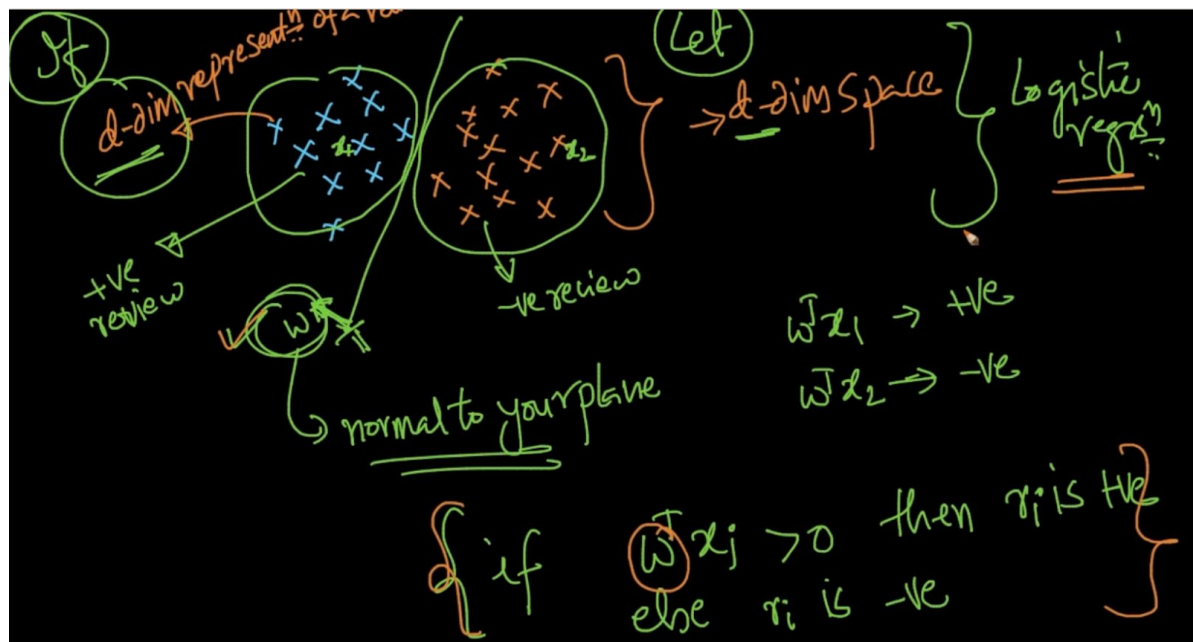 If
d-dim represent^n of
Let
→ d-dim space
Logistic
regrs^n
x1
x2
+ve
review
-ve review
w
normal to your plane
w^T x1 → +ve
w^T x2 → -ve
if w^T xi > 0 then ri is +ve
else ri is -ve